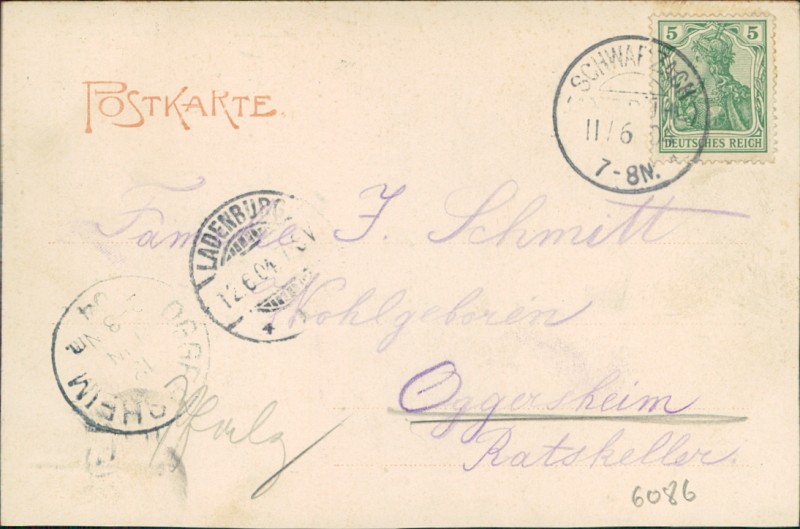 POSTKARTE.
5 5
DEUTSCHES REICH
11/6
7-8N.
LADENBURG
12.6.04
OGGERSHEIM
04
8 VM
Familie J. Schmitt
Wohlgeboren
Oggersheim
Pfalz
Ratskeller.
6086